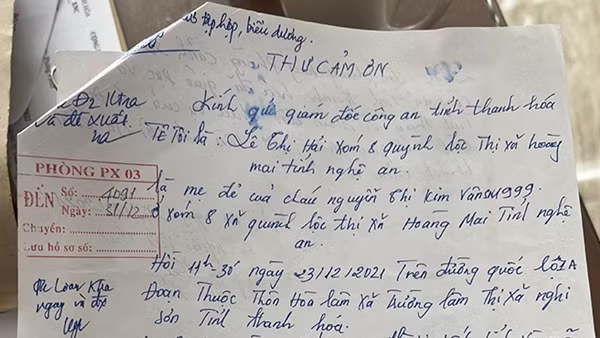 tập hợp, biểu dương.
THƯ CẢM ƠN
Kính gửi giám đốc công an tỉnh thanh hóa
và đề xuất
TÊ Tôi là: Lê Thị Hải xóm 8 quỳnh lộc Thị xã hoàng
mai tỉnh nghệ an.
PHÒNG PX 03
ĐẾN
Số: 4091
Ngày: 31/12
Chuyển:
Lưu hồ sơ số:
là mẹ đẻ của cháu nguyễn thị kim Vân SN 1999.
ở xóm 8 xã quỳnh lộc thị xã Hoàng Mai Tỉnh nghệ
an.
Hồi 11h-30 ngày 23/12/2021 Trên đường quốc lộ 1A
Đoạn Thuộc Thôn Hòa lâm xã Trường lâm Thị xã nghi
sơn Tỉnh thanh hóa.
ngay và